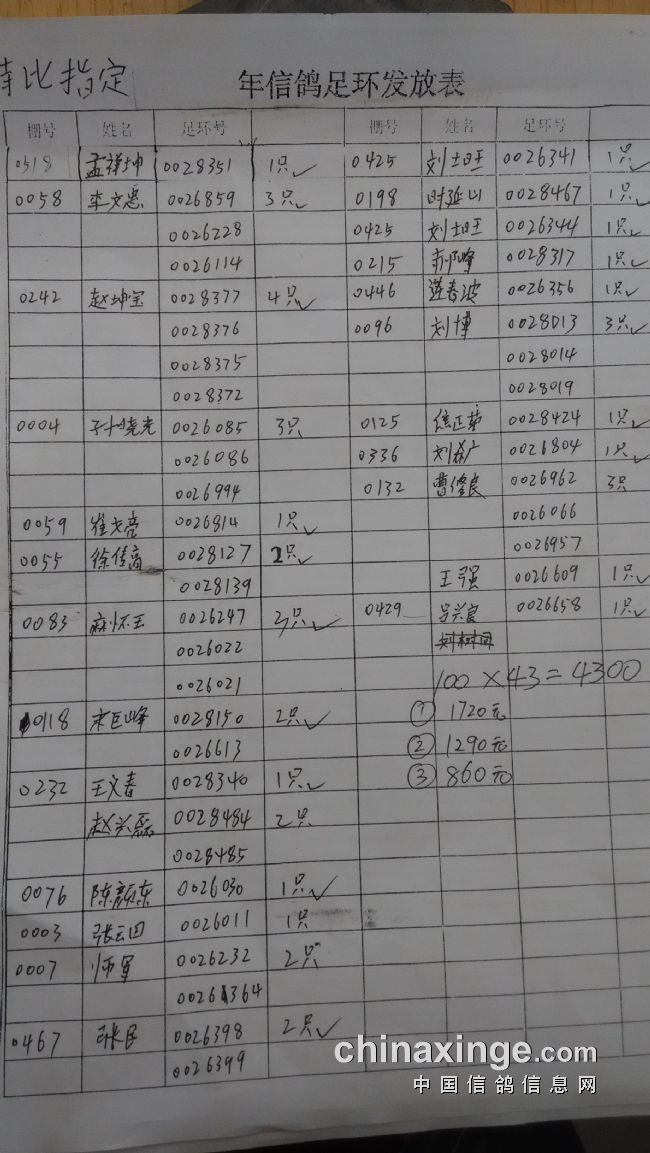 特比指定 年信鸽足环发放表
棚号 姓名 足环号 棚号 姓名 足环号
0518 孟祥坤 0028351 1只✓ 0425 刘士旺 0026341 1只✓
0058 李文忠 0026859 3只✓ 0198 时延山 0028467 1只✓
0026228 0425 刘士旺 0026344 1只✓
0026114 0215 峰 0028317 1只✓
0242 赵坤宝 0028377 4只✓ 0446 莲春波 0026356 1只✓
0028376 0096 刘博 0028013 3只✓
0028375 0028014
0028372 0028019
0004 孙晓光 0026085 3只 0125 信正荣 0028424 1只✓
0026086 0336 刘 广 0026804 1只✓
0026994 0132 曹修良 0026962 3只
0059 崔文亮 0026814 1只✓ 0026066
0055 徐传高 0028127 2只✓ 0026957
0028139 王强 0026609 1只✓
0083 麻怀玉 0026247 3只✓ 0429 吕兴良 0026658 1只✓
0026022
0026021 100×43=4300
0118 宋巨峰 0028150 2只✓ ① 1720元
0026613 ② 1290元
0232 王文春 0028340 1只✓ ③ 860元
赵兴磊 0028484 2只
0028485
0076 陈颜东 0026030 1只✓
0003 张云田 0026011 1只
0007 师军 0026232 2只
0026364
0467 张民 0026398 2只✓
0026399
chinaxinge.com
中国信鸽信息网